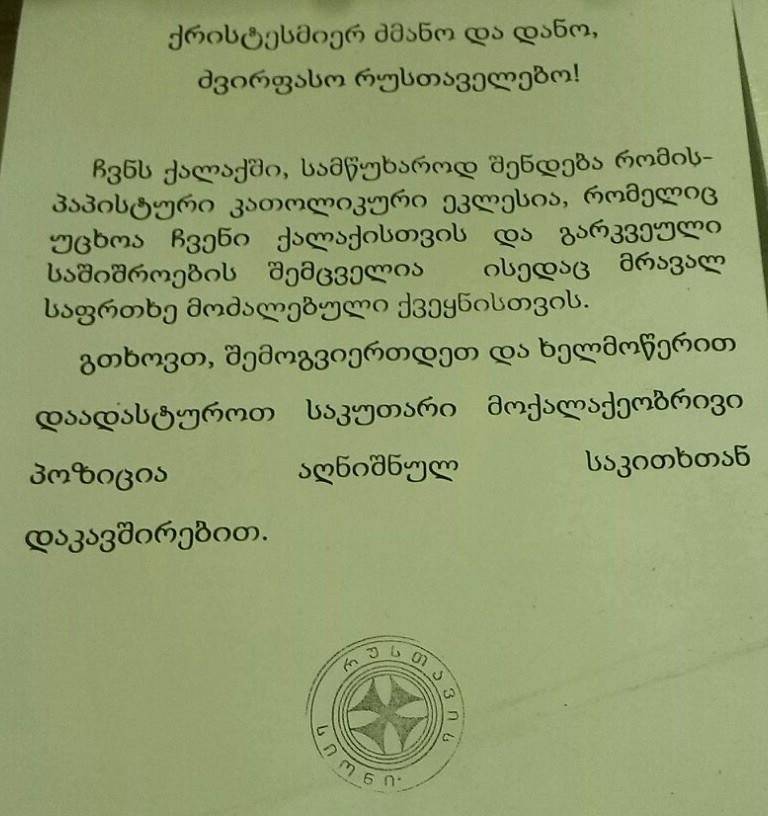 ქრისტესმიერ ძმანო და დანო,
ძვირფასო რუსთაველებო!
ჩვნს ქალაქში, სამწუხაროდ შენდება რომის-
პაპისტური კათოლიკური ეკლესია, რომელიც
უცხოა ჩვენი ქალაქისთვის და გარკვეული
საშიშროების შემცველია ისედაც მრავალ
საფრთხე მოძალებული ქვეყნისთვის.
გთხოვთ, შემოგვიერთდეთ და ხელმოწერით
დაადასტუროთ საკუთარი მოქალაქეობრივი
პოზიცია აღნიშნულ საკითხთან
დაკავშირებით.
რუსთავის
სიონი